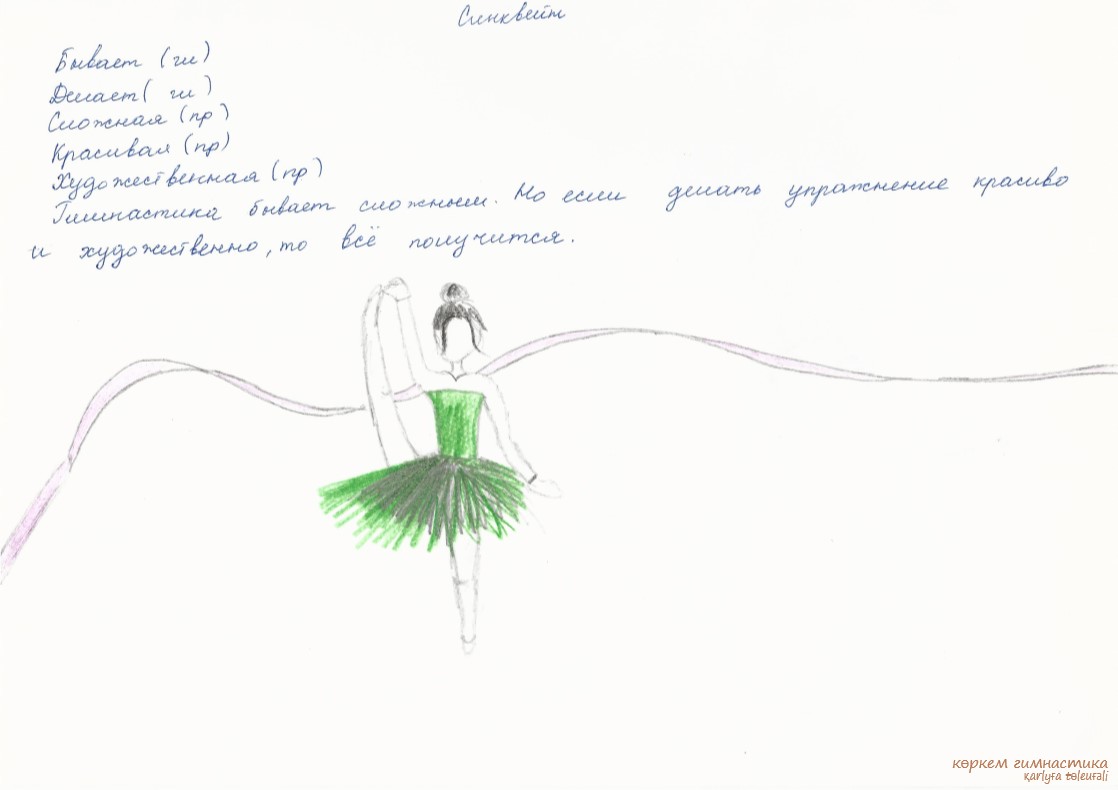 Синквейн
Бывает (гл)
Делает( гл )
Сложная (пр)
Красивая (пр)
Художественная (пр)
Гимнастика бывает сложным. Но если делать упражнение красиво
и художественно, то всё получится.
көркем гимнастика
qarlyǵa tóleuǵali